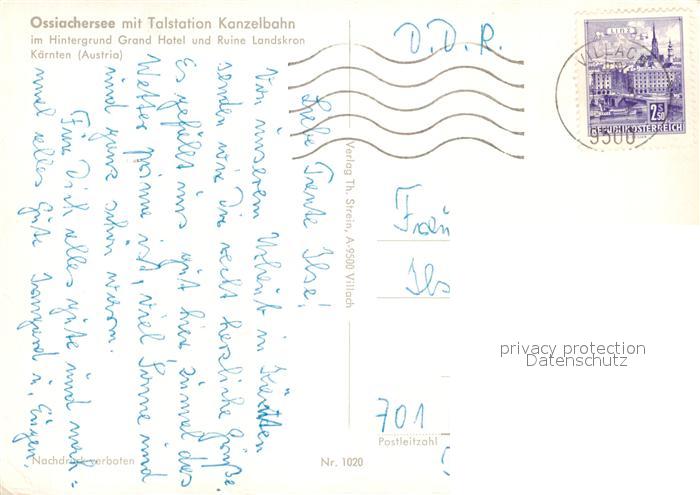 Ossiachersee mit Talstation Kanzelbahn
im Hintergrund Grand Hotel und Ruine Landskron
Kärnten (Austria)
D.D.R.
LINZ
VILLACH
9500
2S50
REPUBLIK ÖSTERREICH
Liebe Tante Ilse!
Von unserem Urlaub in Kärnten
senden wir Dir recht herzliche Grüße.
Es gefällt uns gut hier, zumal das
Wetter prima ist, viel Sonne und
und ganz schön warm.
Für Dich alles gute und noch=
mal alles Gute Irmgard u. Eugen.
Verlag Th. Strein, A-9500 Villach
Frau
Ils
701
Postleitzahl
Nachdruck verboten
Nr. 1020
privacy protection
Datenschutz